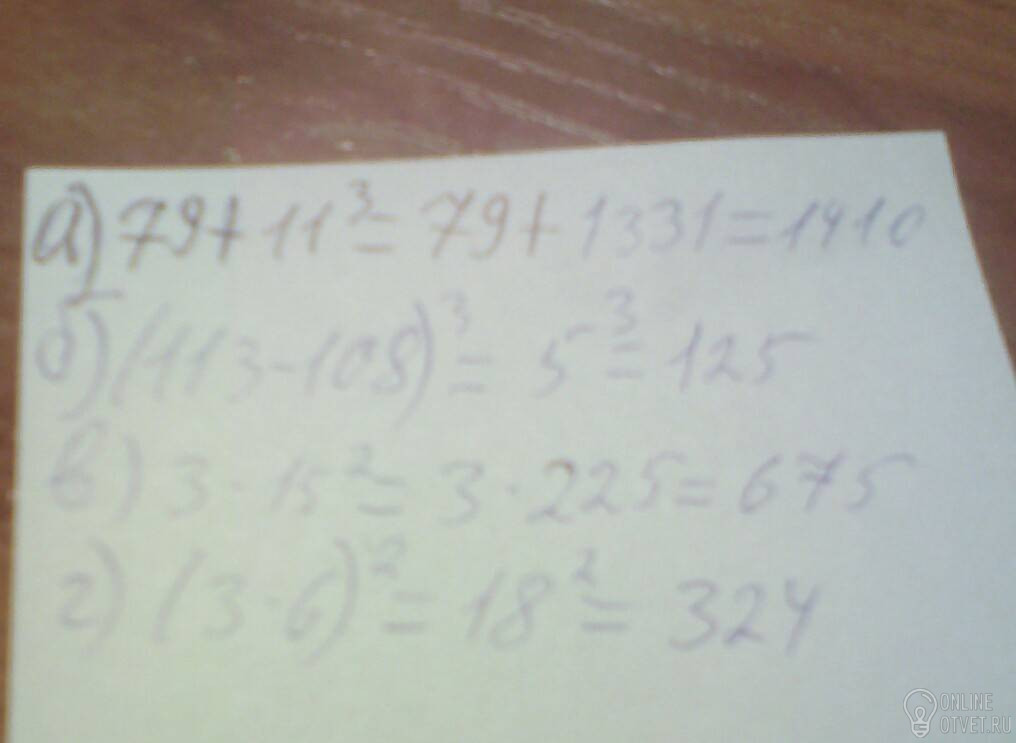 а) 79+11³=79+1331=1410
б) (113-108)³=5³=125
в) 3·15²=3·225=675
г) (3·6)²=18²=324
ONLINE
OTVET.RU